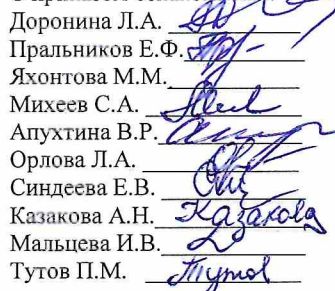 Доронина Л.А.
Пральников Е.Ф.
Яхонтова М.М.
Михеев С.А.
Апухтина В.Р.
Орлова Л.А.
Синдеева Е.В.
Казакова А.Н. Казакова
Мальцева И.В.
Тутов П.М. Тутов